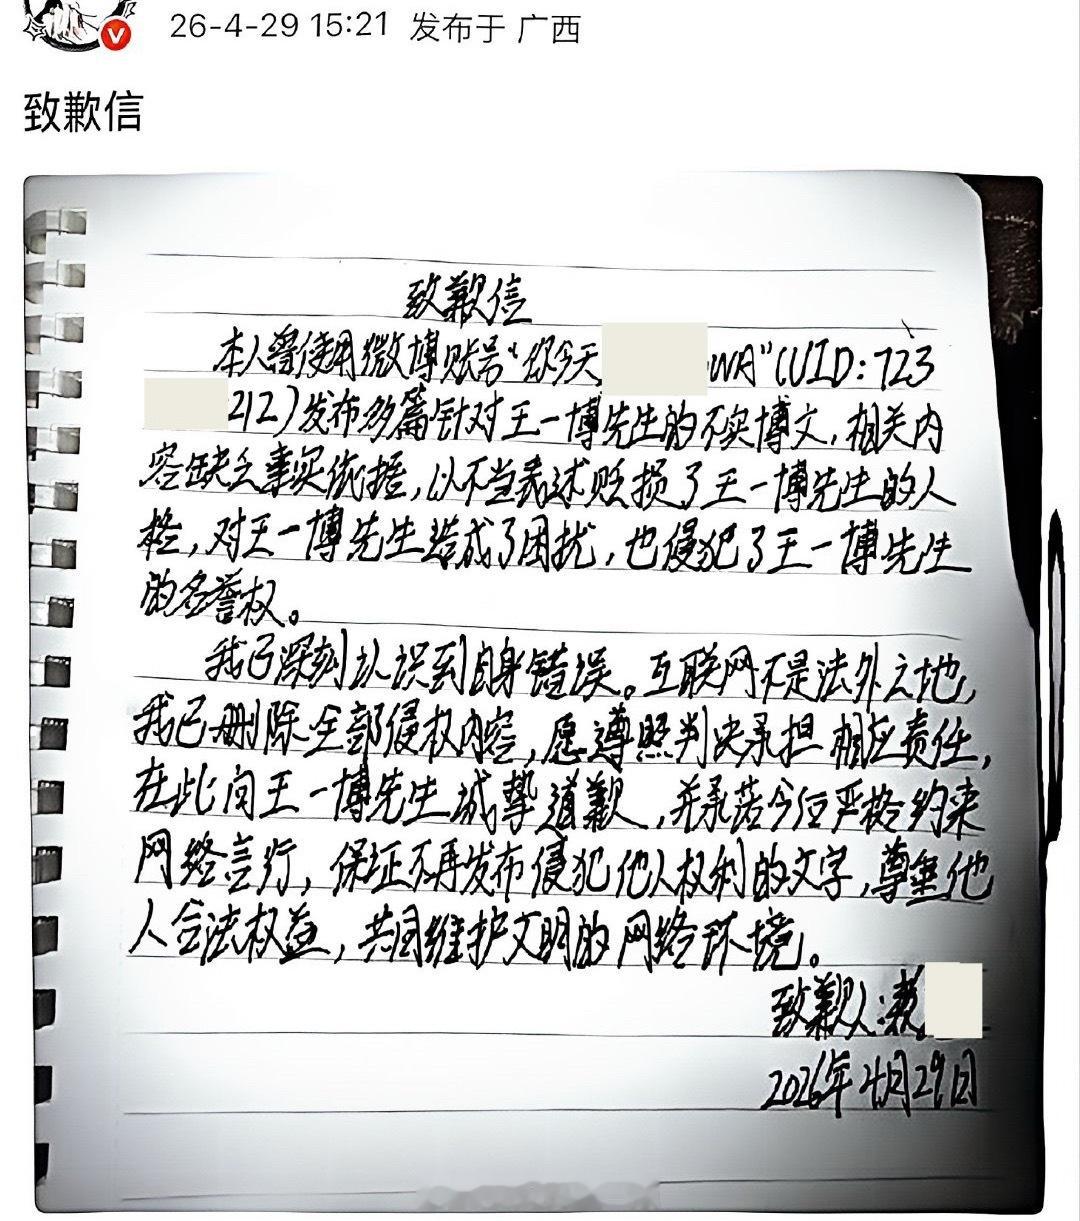 26-4-29 15:21 发布于 广西
致歉信
致歉信
本人曾使用微博账号“你今天 WA”(UID:723
212)发布多篇针对王一博先生的不实博文,相关内
容缺乏事实依据,以不当表述贬损了王一博先生的人
格,对王一博先生造成了困扰,也侵犯了王一博先生
的名誉权。
我已深刻认识到自身错误。互联网不是法外之地,
我已删除全部侵权内容,愿遵照判决承担相应责任,
在此向王一博先生诚挚道歉,并承诺今后严格约束
网络言行,保证不再发布侵犯他人权利的文字,尊重他
人合法权益,共同维护文明的网络环境。
致歉人:
2026年4月29日